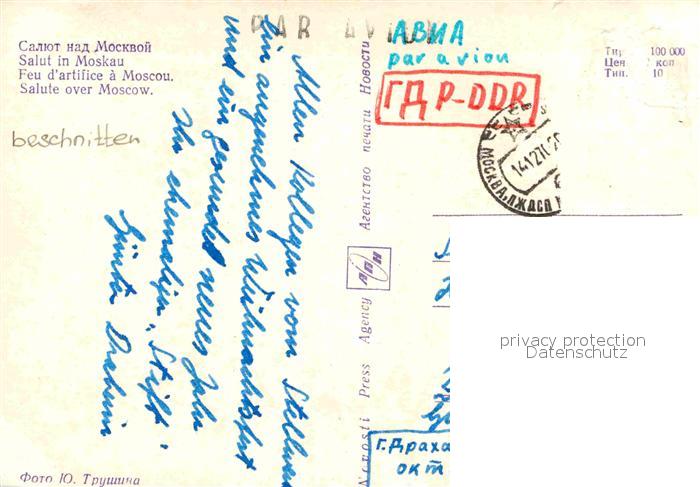 PAR AVION
Салют над Москвой
Salut in Moskau
Feu d'artifice à Moscou.
Salute over Moscow.
beschnitten
АВИА
par avion
ГДР-DDR
100 000
коп
Тип. 10
МОСКВА
141271
Allen Kollegen vom
ein angenehmes Weihnachtsfest
und ein gesundes neues Jahr
Ihr ehemaliger „Stift"
Günter Draheim
Novosti Press Agency
АПН
Агентство печати Новости
privacy protection
Datenschutz
Г.Драха
окт
Фото Ю. Трушина